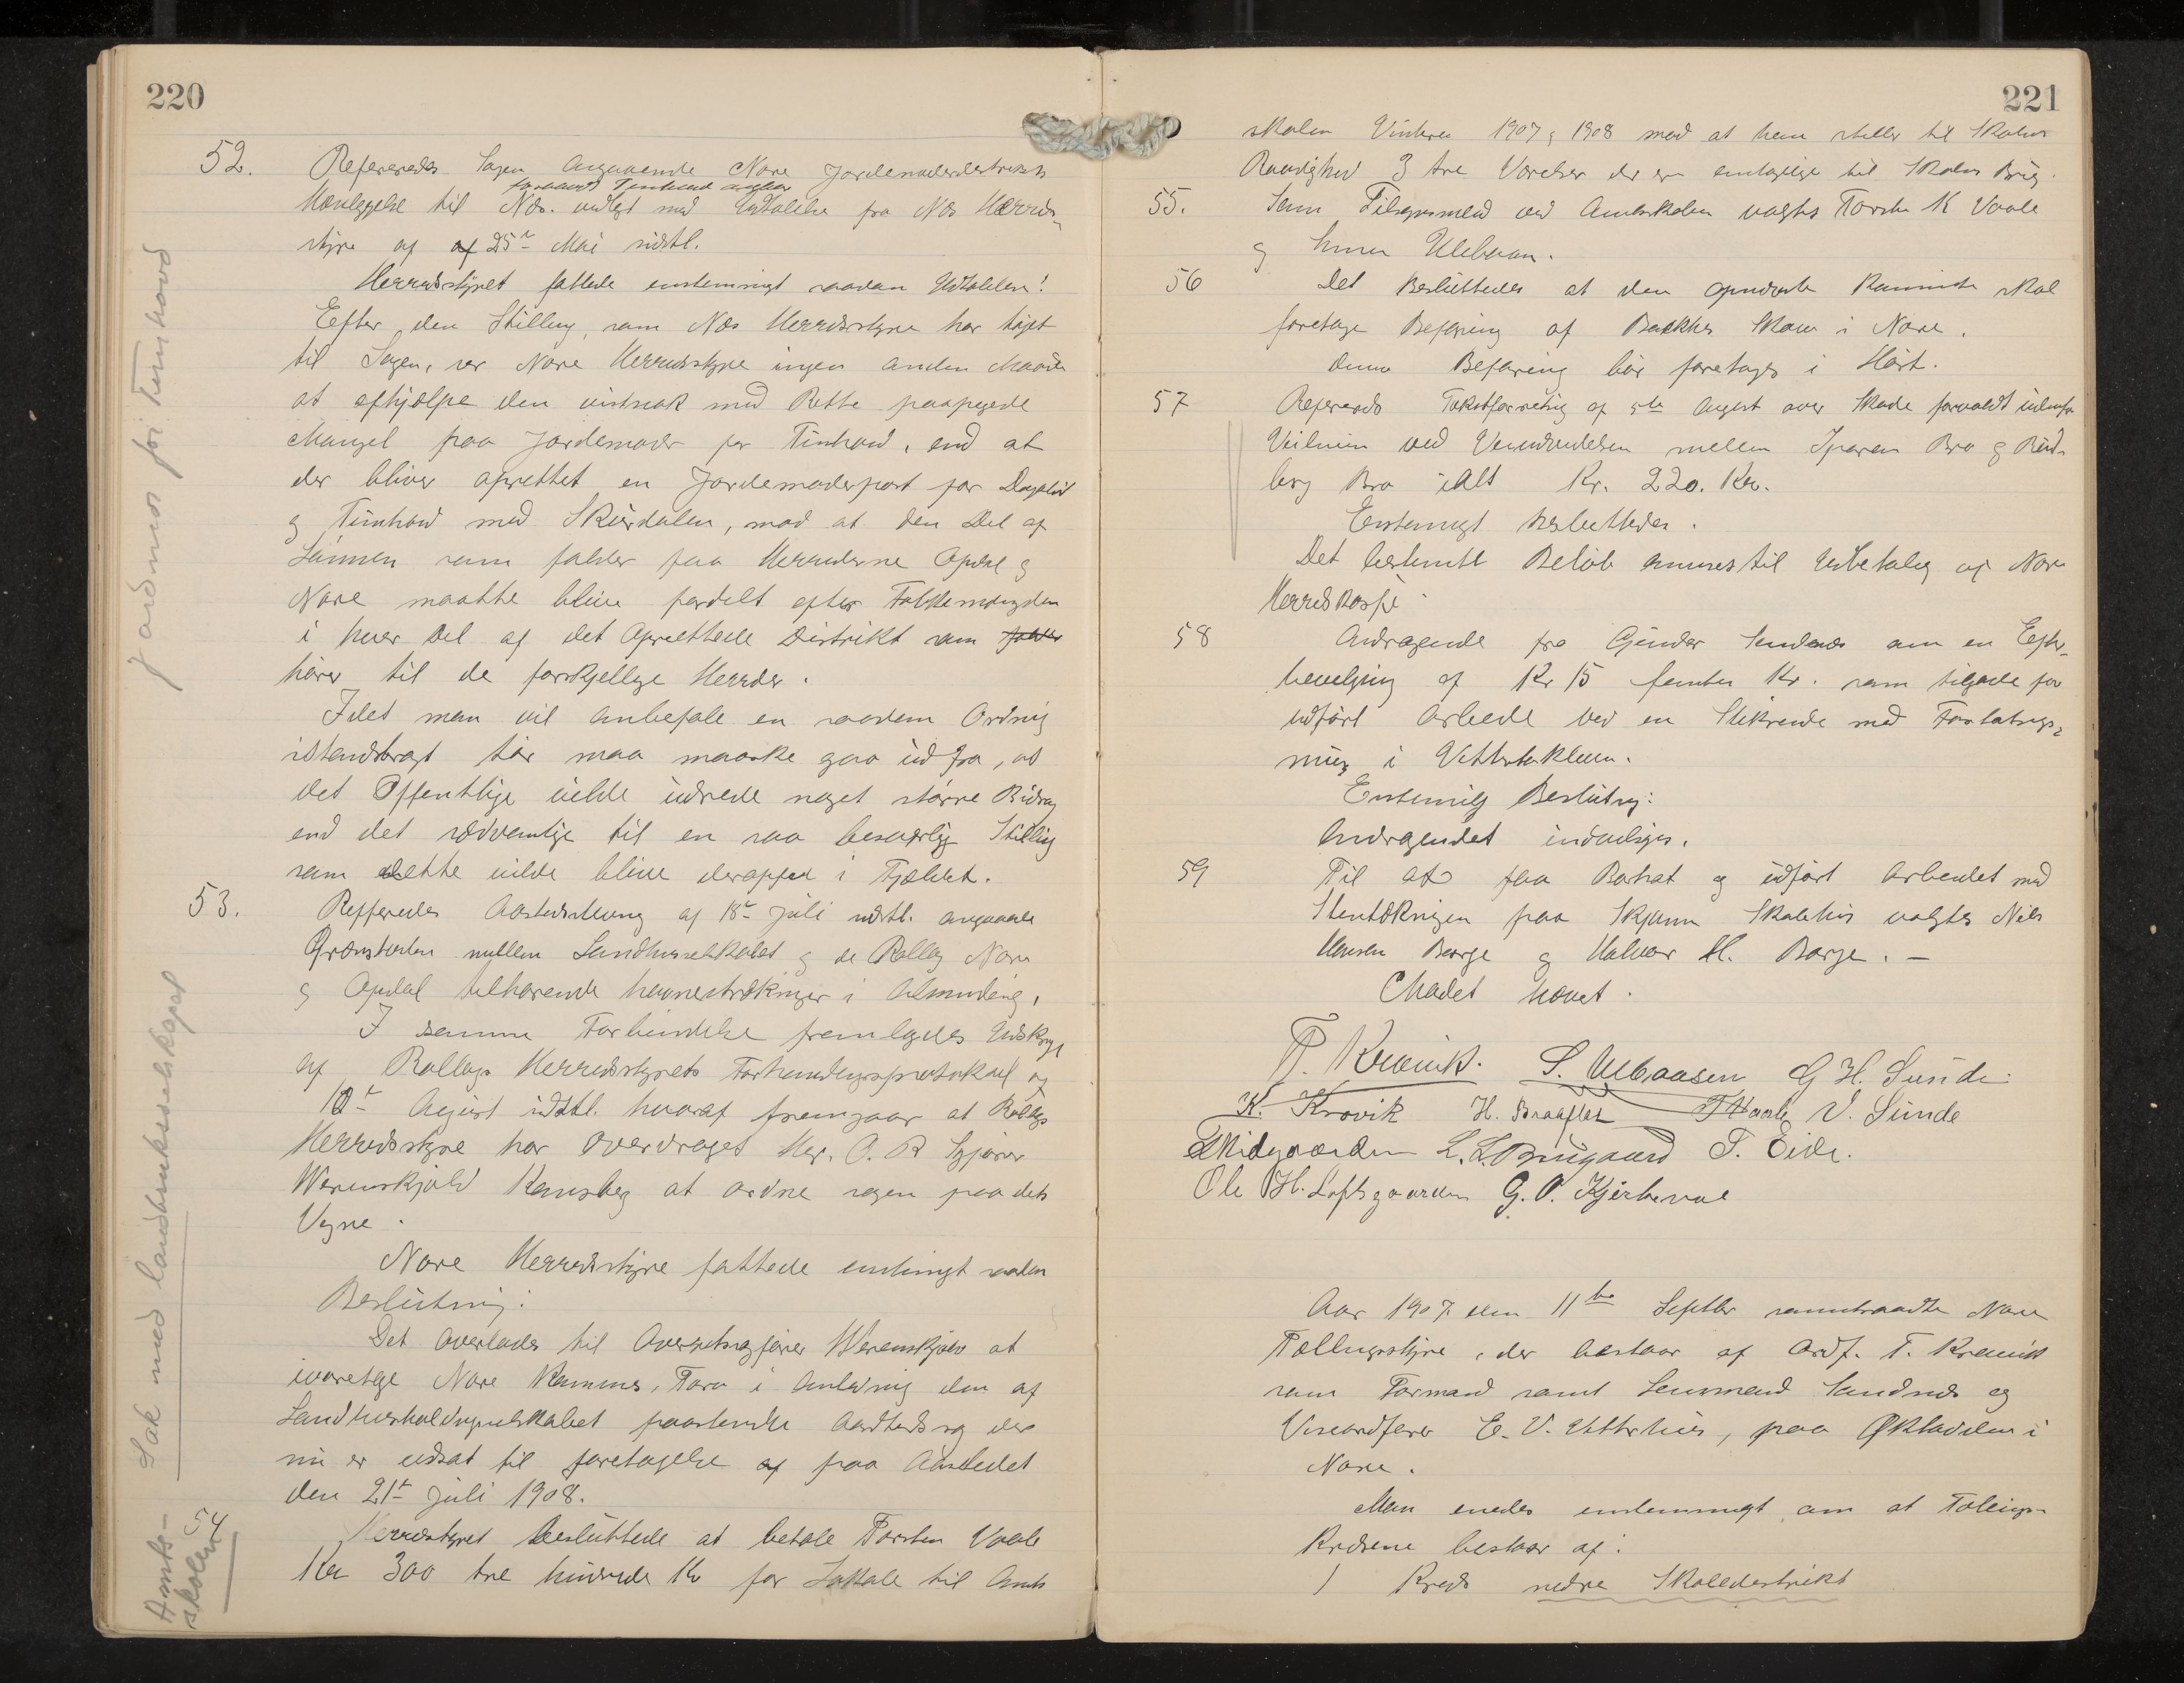 220
52. Refereredes Sagen angaaende Nore Jordemoderdistrikts
forsaavidt Tunhovd angaar
Henlæggelse til Næs. vedlagt med Udtalelse fra Næs Herreds-
styre af 25de Mai sidstl.
Herredsstyret fattede enstemmigt saadan Udtalelse:
Efter den Stilling, som Næs Herredsstyre har taget
til Sagen, ser Nore Herredsstyre ingen anden Maade
at afhjælpe den vistnok med Rette paapegede
Mangel paa Jordemoder for Tunhovd, end at
der bliver oprettet en Jordemoderpost for Dagalid
og Tunhovd med Skurdalen, mod at den Del af
Lønnen som falder paa Herrederne Opdal og
Nore maatte blive fordelt efter Folkemængden
i hver Del af det oprettede Distrikt som falder
hører til de forskjellige Herreder.
Idet man vil anbefale en saadan Ordning
istandbragt tør maa maaske gaa ud fra, at
det Offentlige vilde udrede noget større Bidrag
end det sædvanlige til en saa besværlig Stilling
som dette vilde blive deroppe i Fjeldet.
53. Reffereredes Aastedsstevning af 18de Juli sidstl. angaaende
Grænsesten mellem Landhusselskabet og de Rollag Nore
og Opdal tilhørende havnestrækninger i Almending.
I samme Forbindelse fremlagdes Udskrift
af Rollags Herredsstyrets Forhandlingsprotokol af
10de August sidstl. hvoraf fremgaar at Rollags
Herredsstyre har overdraget Hr. O. R Sagfører
Werenskjold Kongsberg at ordne sagen paa dets
Vegne.
Nore Herredsstyre fattede enstemmigt saadan
Beslutning:
Det overlades til Overretssagfører Werenskjold at
ivaretage Nore Kommunes Tarv i Anledning den af
Landhusholdningsselskabet paastevnte Aastedssag der
nu er udsat til foretagelse af paa Aastedet
den 21de Juli 1908.
54
Herredsstyret besluttede at betale Torsten Vaale
Kr 300 tre hundrede Kr for Lokale til Amts
Jordmor for Tunhovd
Sak med landbruksselskapet
Amts-
skolen
221
skolen Vinteren 1907 og 1908 mod at han stiller til Skolens
Raadighed 3 tre Værelser der er antagelige til Skolens Brug.
55. Som Tilsynsmænd ved Amtsskolen valgtes Torsten K Vaale
og Ulebaan.
56 Det Besluttedes at den opnævnte Kommite skal
foretage Befaring af Bakkes Skov i Nore.
denne Befaring bør foretages i Høst.
57 Refereredes Takstforretning af 5te August over Skade forvoldt udenfor
Veilinien ved Veiudvidelsen mellem Sporan Bro og Rud-
berg Bro ialt Kr. 220. Kr.
Enstemmigt besluttedes.
Det bestemte Beløb anvises til Udbetaling af Nore
Herredskasse.
58 Andragende fra Gunder Sandnæs om en Efter-
bevilgning af Kr 15 femten Kr. som tilgode for
udført Arbeide ved en Stikrende med Forstøtnings-
mur i Vetterkleven.
Enstemmig Beslutning:
Andragendet indvilges.
59 Til at faa Bortsat og udført Arbeidet med
Stentækningen paa Skjønne Skolehus valgtes Nils
Hansen Berge og Halvor H. Borge. —
Mødet hævet.
T. Kravik. S. Ulbaasen G H. Sunde.
K. Kravik H. Braaflat T Vaale V. Sunde
E Skidgaarden L. L. Brugaard T. Eide.
Ole H. Loftsgaarden G. O. Kjerkenæ
Aar 1907 den 11te Septbr sammentraadte Nore
Tællingsstyre, der bestaar af Ordf. T. Kravik
som Formand samt Lensmand Sandnæs og
Viseordfører E. V. Vetterhus, paa Øktedalen i
Nore.
Man enedes enstemmigt om at Tællings-
Kredsene bestaar af:
1 Kreds nedre Skoledistrikt